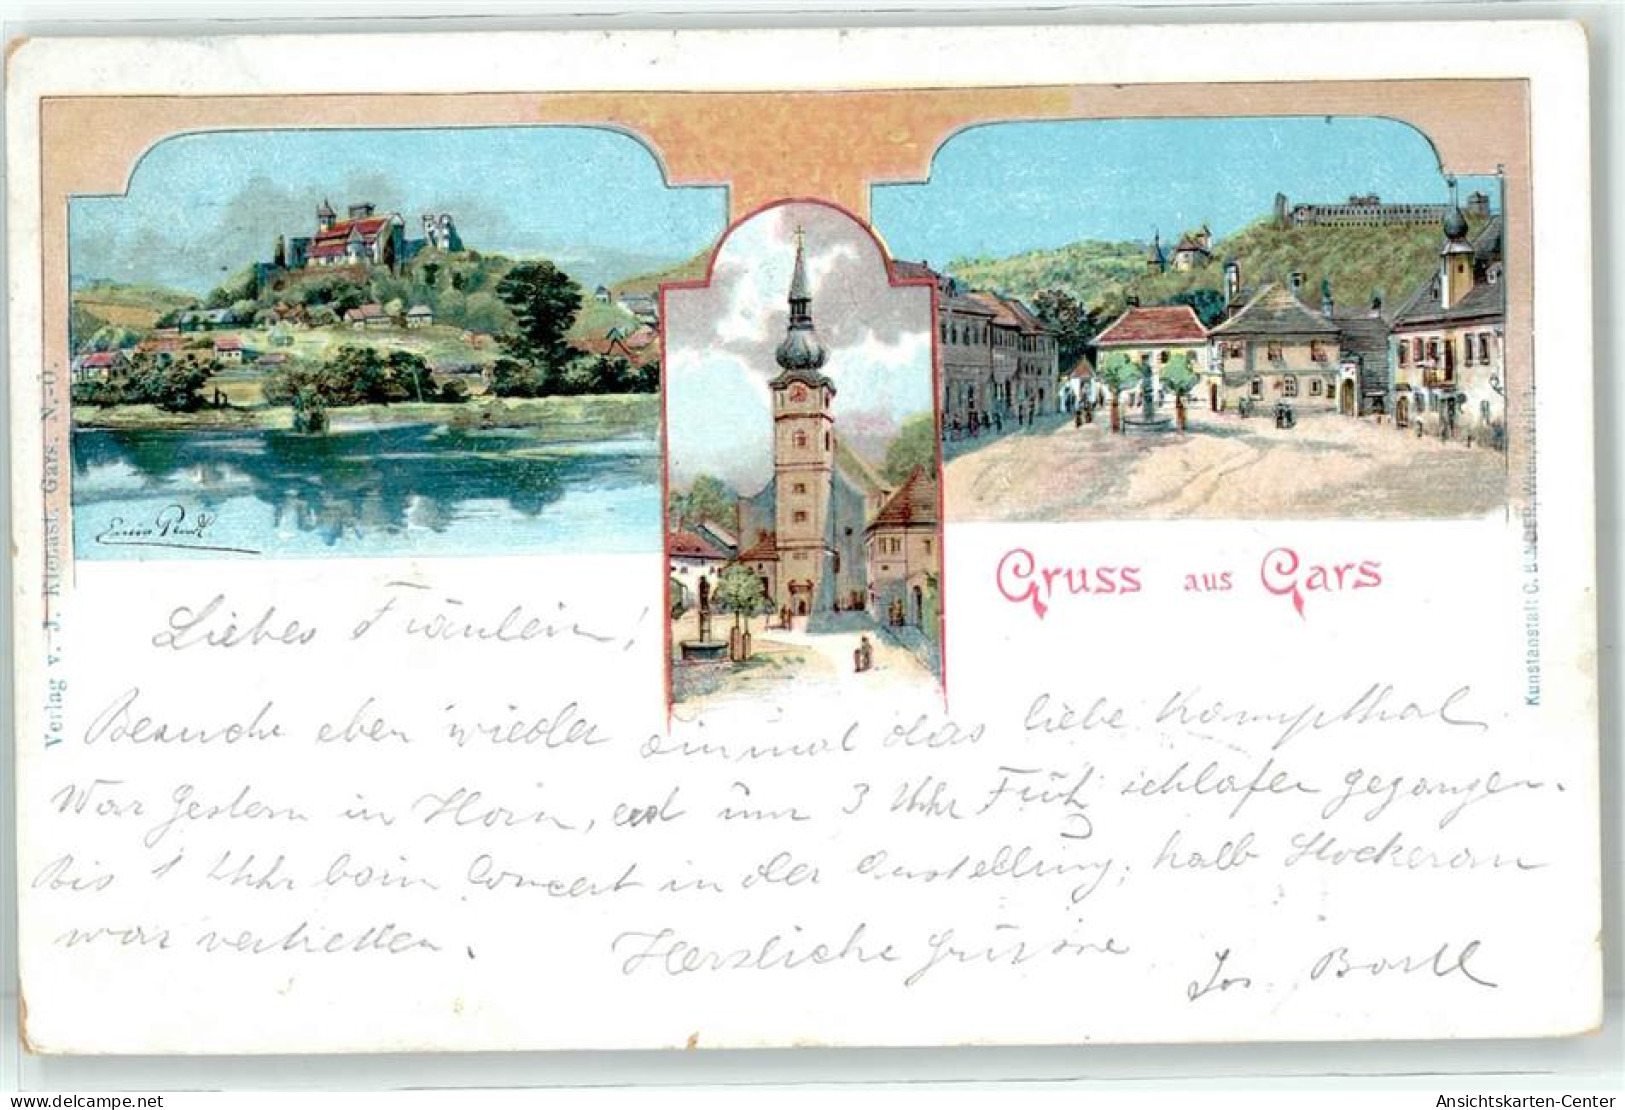 Verlag v. J. Kienast. Gars. N.-Ö.
Kunstanstalt C. Wien, XVIII
Erwin Pendl.
Gruss aus Gars
Liebes Fräulein!
Besuche eben wieder einmal das liebe Kampthal
War gestern in Horn, und um 3 Uhr Früh schlafen gegangen.
Bis 1 Uhr beim Concert in der Austellung, halb Stockerau
war vertretten. Herzliche Grüsse
Jos. Bartl
delcampe.net
Ansichtskarten-Center